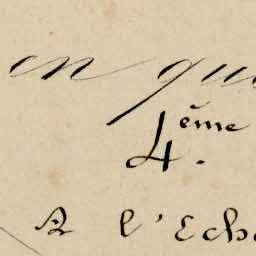 en qua
4.ème
A l'Eche